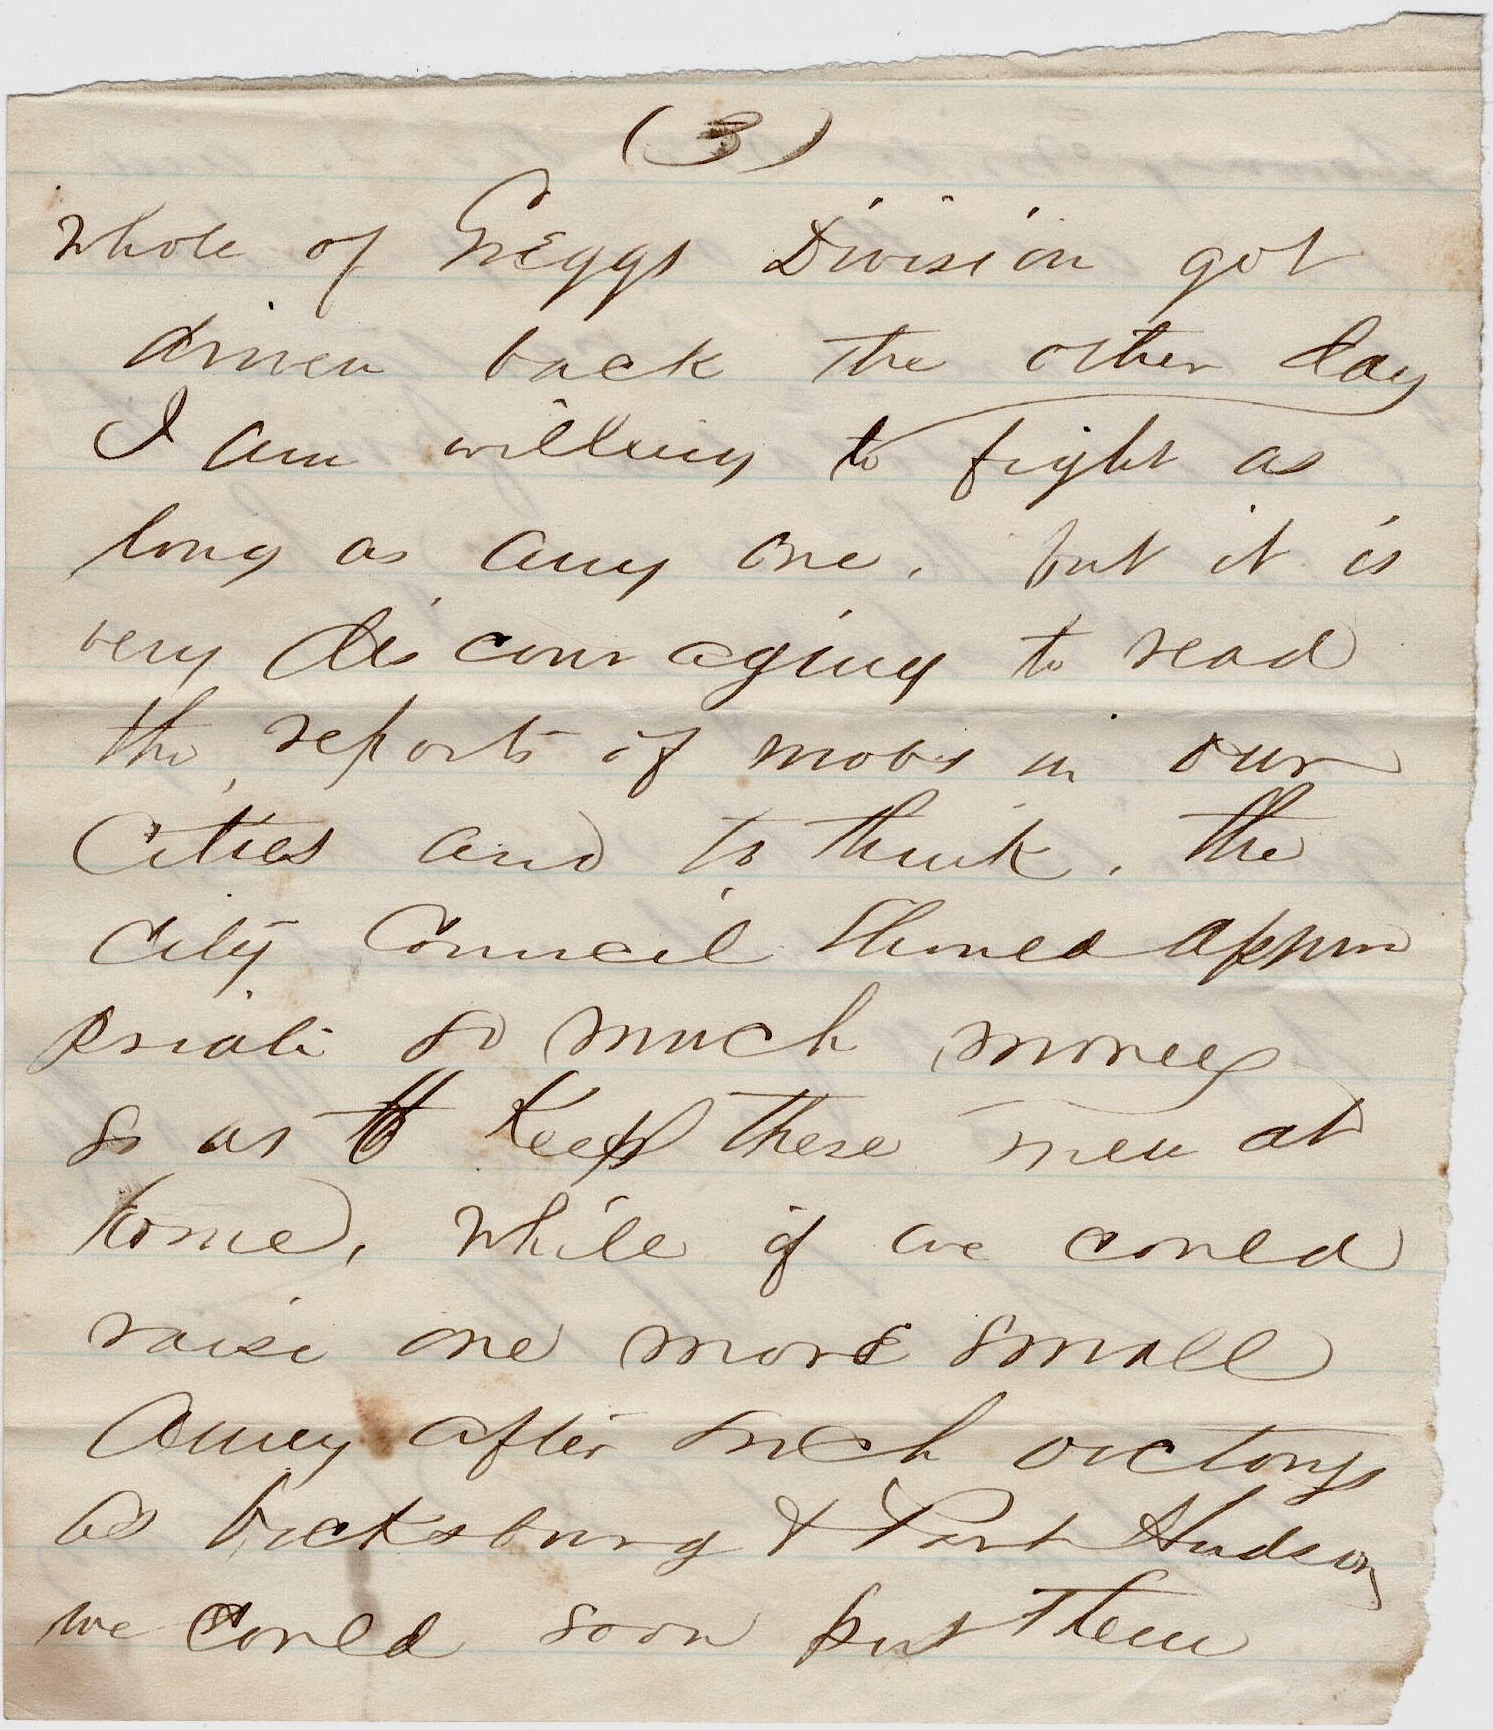 (3)
whole of Greggs Division got
driven back the other day
I am willing to fight as
long as any one, but it is
very discouraging to read
the reports of mobs in our
Cities and to think, the
City Council should appro
priate so much money
so as to keep these men at
home, while if we could
raise one more small
Army after such victorys
as Vicksburg & Port Hudson
we could soon put them